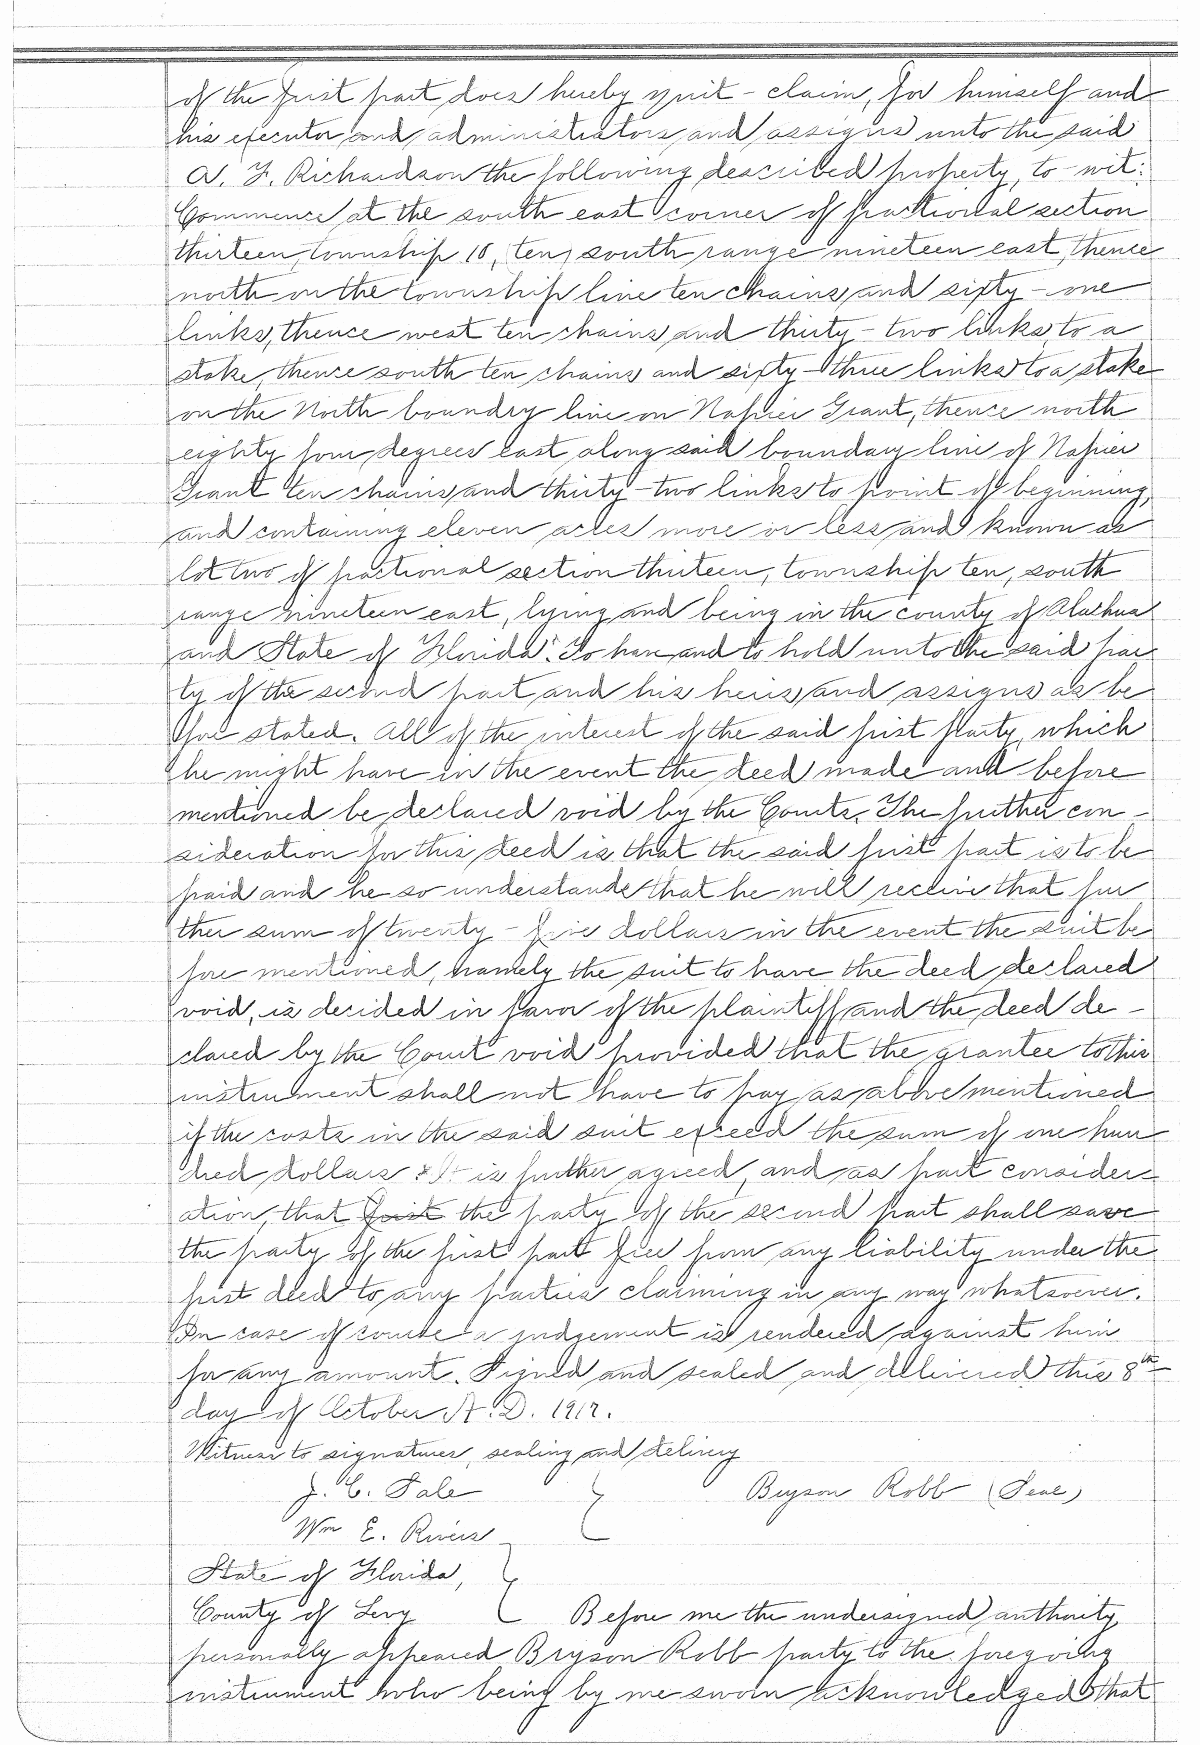 of the first part, does hereby quit - claim, for himself and
his executor and administrators, and assigns unto the said
A. F. Richardson the following described property, to wit:
Commence at the south east corner of fractional section
thirteen, township 10, ten, south range nineteen east, thence
north on the township line ten chains and sixty - one
links, thence west ten chains and thirty - two links to a
stake, thence south ten chains and sixty - three links to a stake
on the North boundry line on Napier Grant, thence north
eighty four degrees east along said boundary line of Napier
Grant ten chains and thirty - two links to point of beginning,
and containing eleven acres more or less and known as
lot two of fractional section thirteen, township ten, south
range nineteen east, lying and being in the county of Alachua
and State of Florida. To have and to hold unto the said par
ty of the second part and his heirs and assigns as be
fore stated. All of the interest of the said first party, which
he might have in the event the deed made and before
mentioned be declared void by the Courts. The further con -
sideration for this deed is that the said first part is to be
paid and he so understands that he will receive that fur
ther sum of twenty - five dollars in the event the suit be
fore mentioned, namely the suit to have the deed declared
void, is decided in favor of the plaintiff and the deed de -
clared by the Court void provided that the grantee to this
instrument shall not have to pay as above mentioned
if the costs in the said suit exceed the sum of one hun
dred dollars. It is further agreed, and as part consider -
ation, that first the party of the second part shall save
the party of the first part free from any liability under the
first deed to any parties claiming in any way whatsoever.
In case of course a judgement is rendered against him
for any amount. Signed and sealed and delivered this 8th
day of October A. D. 1917.
Witness to signatures, sealing and delivery
J. C. Sale Bryson Robb (Seal)
Wm E. Rivers
State of Florida,
County of Levy Before me the undersigned authority
personally appeared Bryson Robb party to the foregoing
instrument who being by me sworn acknowledged that